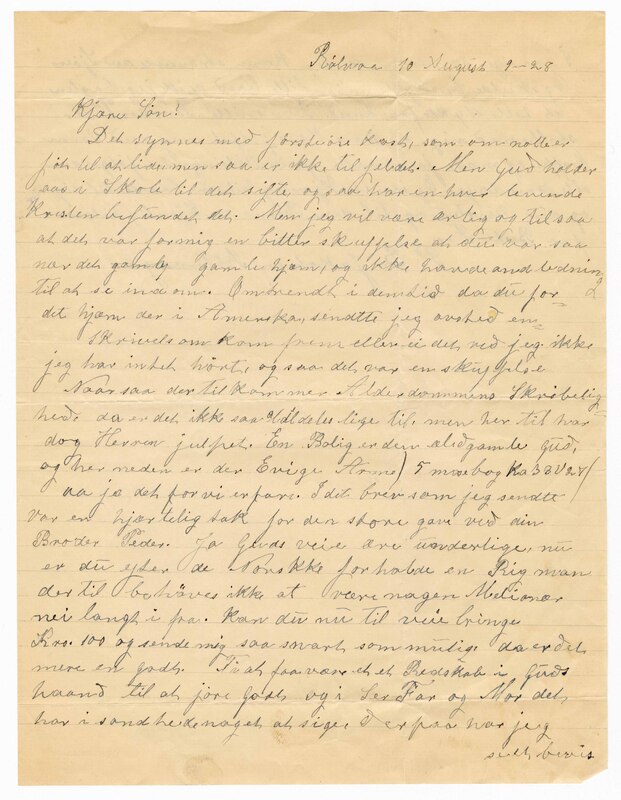 Rølvaa 10 August 9-28
Kjære Søn!
Det synnes med første øie kast, som om nolle er
føt til at lide, men saa er ikke til feldet. Men Gud holder
oas i Skole til det sifte og saa har en hver levende
Kristen befundet det. Men jeg vil være ærlig og til saa
at det var for mig en bitter skuffelse at du var saa
nær det gamle gamle hjem, og ikke havde andledning
til at se ind om. Omtrendt i den tid da du for-
det hjem der i Amerika, sendtte jeg avsted en
Skrivels om kom frem eller ei det ved jeg ikke
jeg har intet hørt, og saa det var en skuffelse
Naar saa der til kommer Alderdommens Skrøbelig
hed, da er det ikke saa lige til, men her til har
dog Herren julpet. En Bolig er den ældgamle Gud,
og her neden er der Evige Arme) 5 mosebog ka 33 V 27/
aa ja det for vi erfare. I det brev som jeg sendte
var en hjærtelig tak for den store gave ved din
Broder Peder. Ja Guds veie ære underlige, nu
er du efter de Norskke forholde en Rig man
der til behøves ikke at være nagen Melionær
nei langt i fra. kan du nu til veie bringe
Kro. 100 og sende mig saa snart som mulig da er det
mere en godt. Ti at faa være et et Redskab i Guds
haand til at jøre godt og i Ser Far og Mor det
har i sandhed naget at sige. Derpaa har jeg
bevis